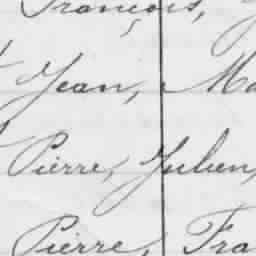 François,
Jean, Ma
Pierre, Julien,
Pierre, Fra